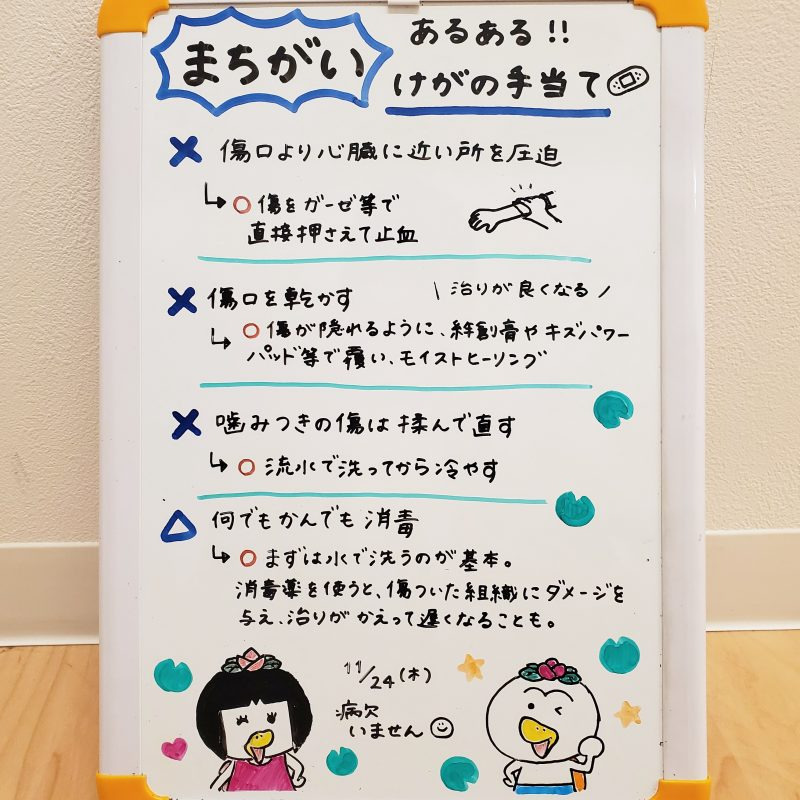 まちがい
あるある!!
けがの手当て
× 傷口より心臓に近い所を圧迫
○ 傷をガーゼ等で
直接押さえて止血
× 傷口を乾かす
\ 治りが良くなる /
○ 傷が隠れるように、絆創膏やキズパワー
パッド等で覆い、モイストヒーリング
× 噛みつきの傷は揉んで直す
○ 流水で洗ってから冷やす
△ 何でもかんでも消毒
○ まずは水で洗うのが基本。
消毒薬を使うと、傷ついた組織にダメージを
与え、治りがかえって遅くなることも。
11/24(木)
病欠
いません